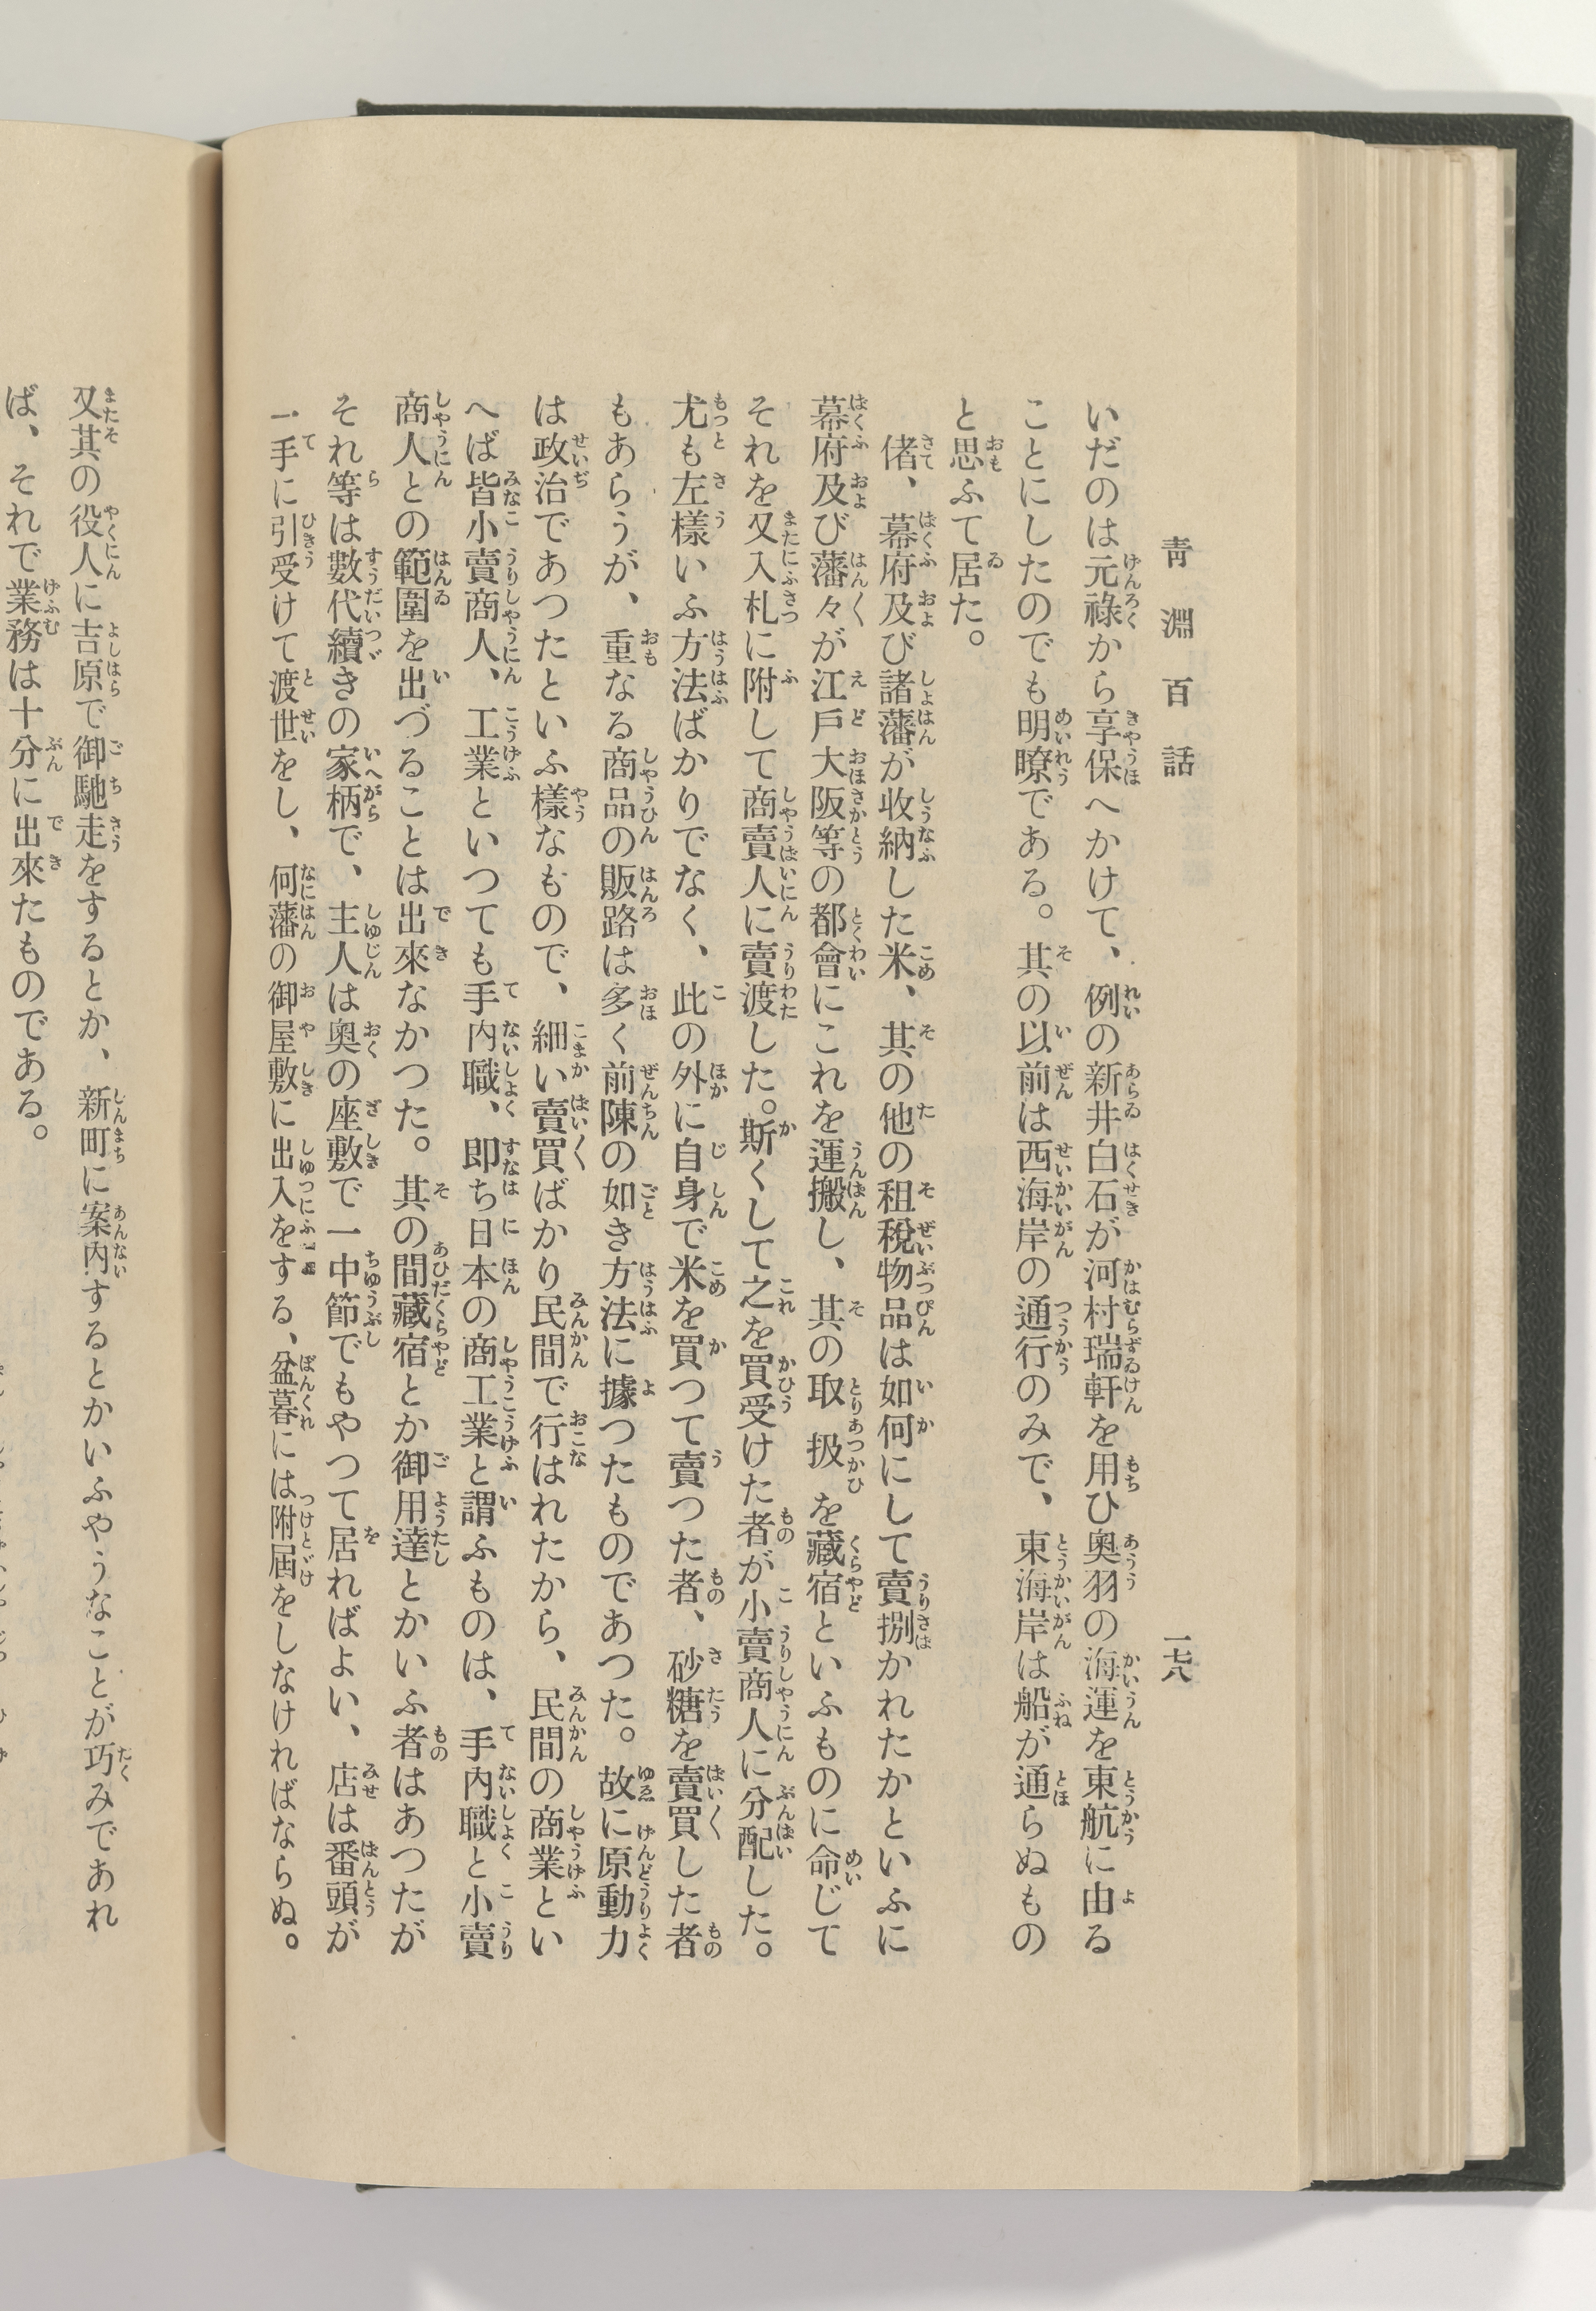 靑淵百話
一七八
いだのは元祿から享保へかけて、例の新井白石が河村瑞軒を用ひ奧羽の海運を東航に由る
ことにしたのでも明瞭である。其の以前は西海岸の通行のみで、東海岸は船が通らぬもの
と思ふて居た。
偖、幕府及び諸藩が收納した米、其の他の租稅物品は如何にして賣捌かれたかといふに
幕府及び藩々が江戶大阪等の都會にこれを運搬し、其の取扱を藏宿といふものに命じて
それを又入札に附して商賣人に賣渡した。斯くして之を買受けた者が小賣商人に分配した。
尤も左樣いふ方法ばかりでなく、此の外に自身で米を買つて賣つた者、砂糖を賣買した者
もあらうが、重なる商品の販路は多く前陳の如き方法に據つたものであつた。故に原動力
は政治であつたといふ樣なもので、細い賣買ばかり民間で行はれたから、民間の商業とい
へば皆小賣商人、工業といつても手內職、卽ち日本の商工業と謂ふものは、手內職と小賣
商人との範圍を出づることは出來なかつた。其の間藏宿とか御用達とかいふ者はあつたが
それ等は數代續きの家柄で、主人は奧の座敷で一中節でもやつて居ればよい、店は番頭が
一手に引受けて渡世をし、何藩の御屋敷に出入をする、盆暮には附屆をしなければならぬ。
又其の役人に吉原で御馳走をするとか、新町に案內するとかいふやうなことが巧みであれ
ば、それで業務は十分に出來たものである。